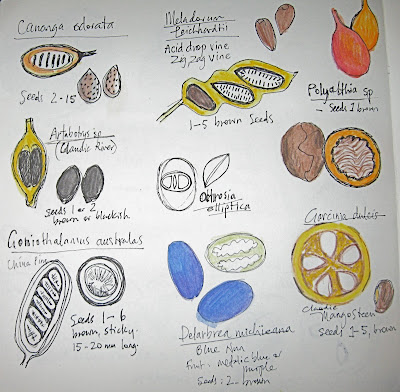 Cananga odorata
Seeds 2-15
Meladorum
Leichardtii
Acid drop vine
Zig Zag Vine
1-5 brown Seeds
Polyalthia sp
- Seeds 1 brown
Artabotrys sp
(Claudie River)
Seeds 1 or 2
brown or blackish
Ochrosia
elliptica
Goniothalamus australas
China Pine
Seeds 1-6
brown, sticky.
15-20 mm long.
Delarbrea michieana
Blue Nun
Fruit: metalic blue or
purple
Seeds: 2 - brown
Garcinia dulcis
Claudie
Mangosteen
seeds 1-5, brown